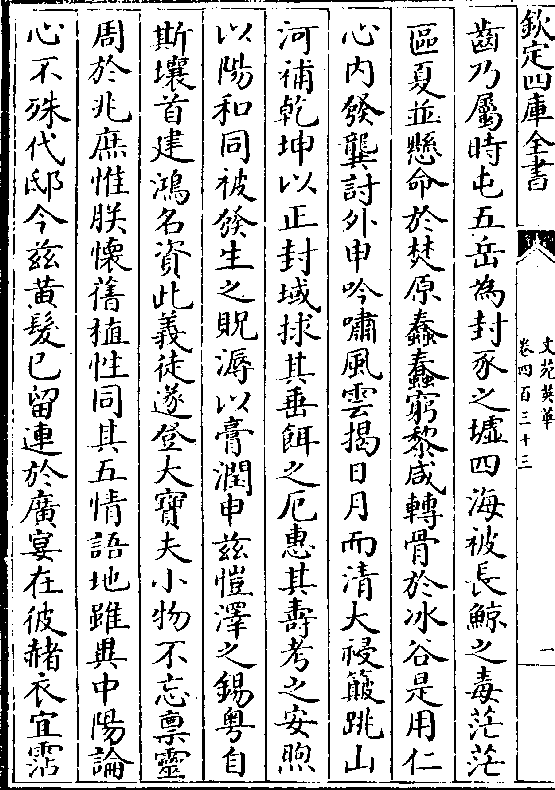 欽定四庫全書
文苑英華
卷四百三十三
一
齒乃屬時屯五岳為封豕之墟四海被長鯨之毒茫茫
區夏並懸命於焚原蠢蠢窮黎咸轉骨於冰谷是用仁
心內發龔討外申吟嘯風雲揭日月而清大祲簸跳山
河補乾坤以正封域捄其垂餌之厄惠其壽考之安煦
以陽和同被發生之貺溽以膏潤申茲愷澤之錫粤自
斯壤首建鴻名資此義徒遂登大寶夫小物不忘禀靈
周於兆庶惟朕懷舊植性同其五情語地雖興中陽論
心不殊代邸今茲黃髮已留連於廣宴在彼赭衣宜霑